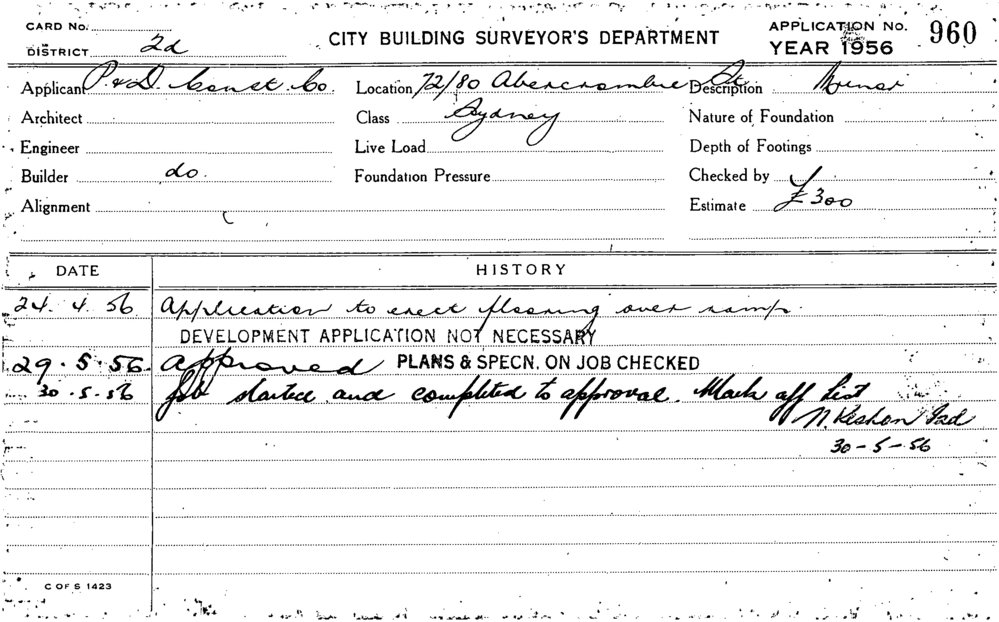 CARD No.
DISTRICT 2d
CITY BUILDING SURVEYOR'S DEPARTMENT
APPLICATION No. 960
YEAR 1956
Applicant P. & D. Const. Co. Location 72/80 Abercrombie St. Description Minor
Architect Class Sydney Nature of Foundation
Engineer Live Load Depth of Footings
Builder do. Foundation Pressure Checked by
Alignment Estimate £300
DATE HISTORY
24. 4. 56 Application to erect flooring over ramp.
DEVELOPMENT APPLICATION NOT NECESSARY
29. 5. 56. Approved PLANS & SPECN. ON JOB CHECKED
30. 5. 56 Job started and completed to approval. Mark off list
30-5-56
C OF S 1423